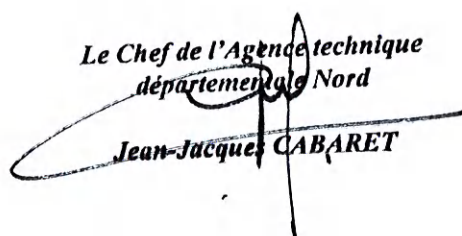 Le Chef de l'Agence technique
départementale Nord
Jean-Jacques CABARET